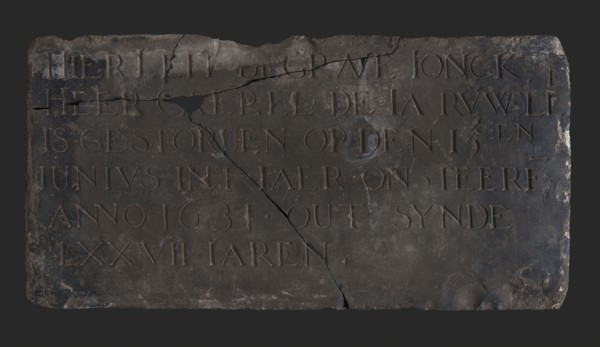 HIER LEIT BEGRAVE IONCK
HEER CAEREL DE LA RVWELL
IS GESTORVEN OP DEN 15EN
IUNIVS IN T IAER ONS HEERE
ANNO 1631 OUT SYNDE
LXXVII IAREN